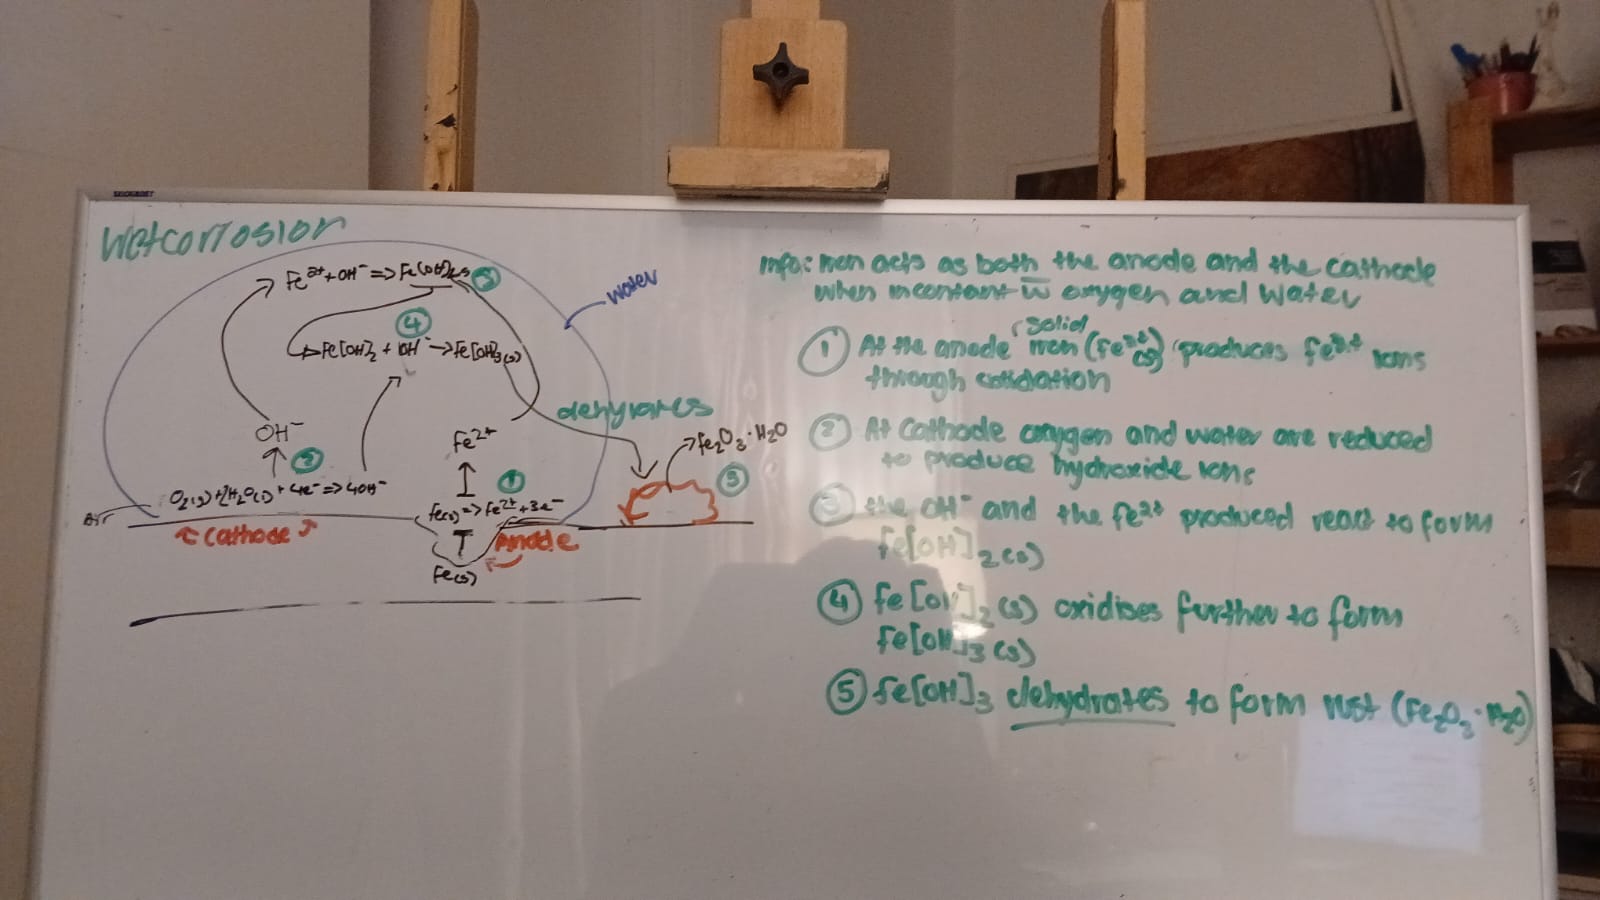 Wetcorrosion
Fe²⁺ + OH⁻ => Fe(OH)₂(s) 3
water
4
Fe[OH]₂ + OH⁻ → Fe[OH]₃(s)
dehyrates
OH⁻
Fe²⁺
Fe₂O₃·H₂O
2
1
5
O₂(g) + 2H₂O(l) + 4e⁻ => 4OH⁻
Fe(s) => Fe²⁺ + 3e⁻
Air
Cathode
Anode
Fe(s)
Info: Iron acts as both the anode and the cathode
when in contant w̅ oxygen and water
solid
① At the anode iron (Fe²⁺(s)) produces Fe²⁺ ions
through oxidation
② At Cathode oxygen and water are reduced
to produce hydroxide ions
③ the OH⁻ and the Fe²⁺ produced react to form
Fe[OH]₂(s)
④ Fe[OH]₂(s) oxidises further to form
Fe[OH]₃(s)
⑤ Fe[OH]₃ dehydrates to form rust (Fe₂O₃·H₂O)